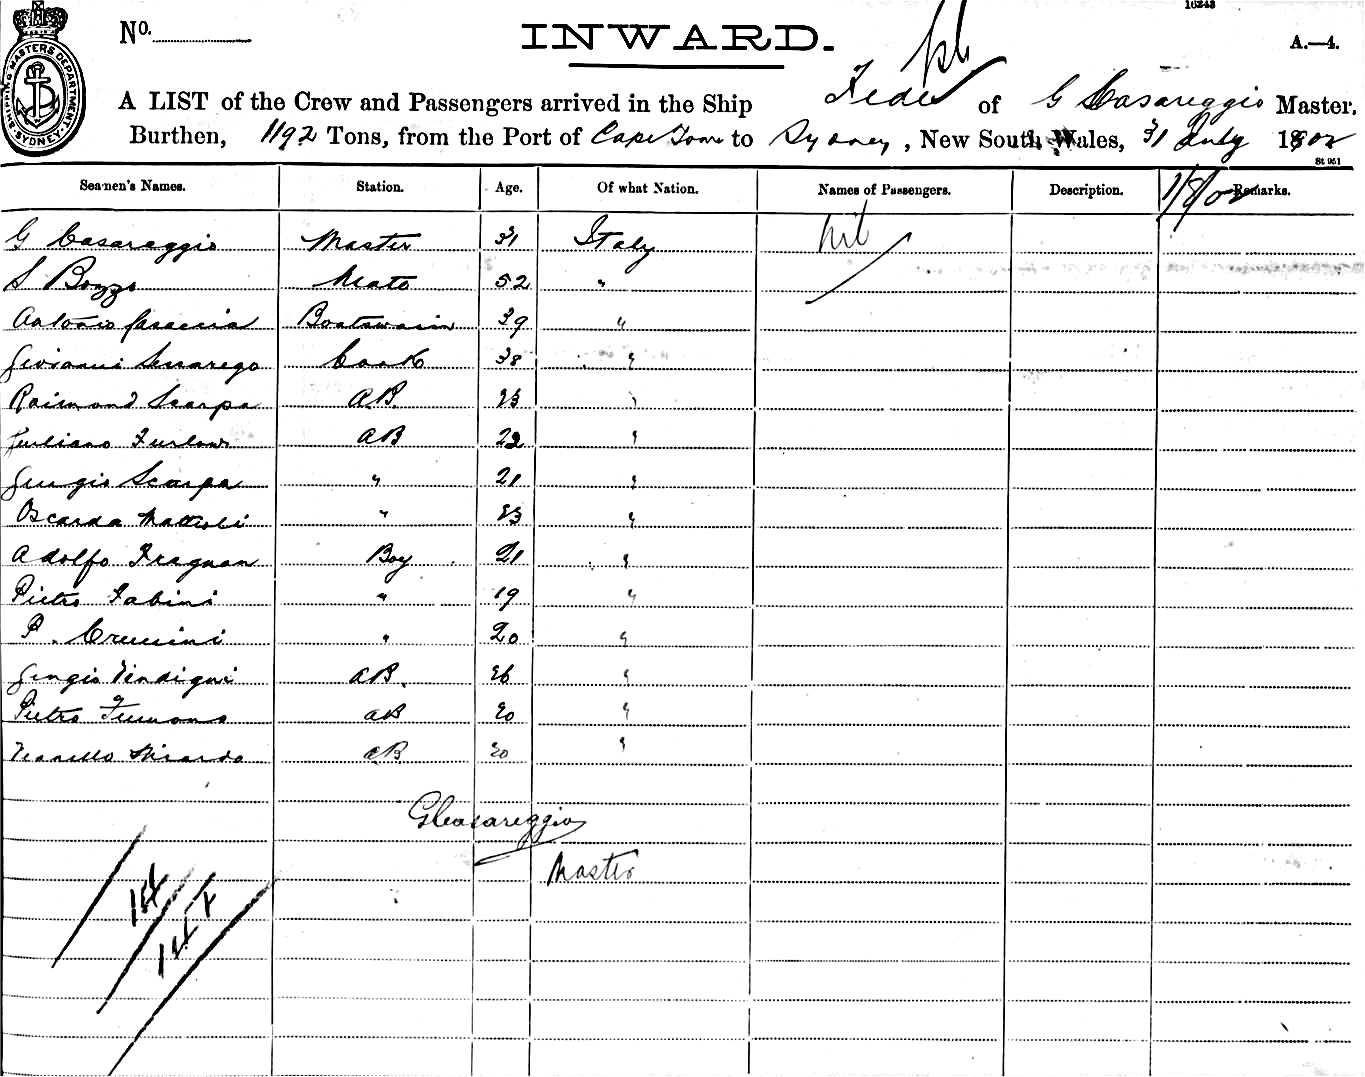 16243
No.
INWARD.
A.—4.
SHIPPING MASTERS DEPARTMENT SYDNEY
A LIST of the Crew and Passengers arrived in the Ship Fede of G Casareggio Master.
Burthen, 1192 Tons, from the Port of Cape Town to Sydney, New South Wales, 31 July 1902
St 951
Seamen's Names. Station. Age. Of what Nation. Names of Passengers. Description. Remarks.
1/8/02
G Casareggio Master 31 Italy nil
S Bozzo Mate 52 "
Antonio Boatswain 39 "
Giovanni Cook 38 "
Raimond Scarpa AB. 23 "
Giuliano Furlan AB 22 "
Giorgio Scarpa " 21 "
Oscarda Mattioli " 23 "
Adolfo Fragnan Boy 21 "
Pietro Fabini " 19 "
P. " 20 "
Giorgio Vindigni AB. 26 "
Pietro AB 20 "
Vianello AB 20 "
G Casareggio
Master